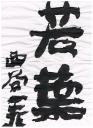 若葉
西谷